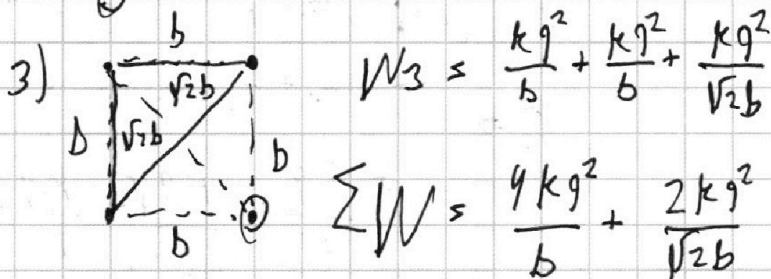 3)
b
√2b
b
√2b
b
b
W3 = kq²/b + kq²/b + kq²/√2b
∑W = 4kq²/b + 2kq²/√2b